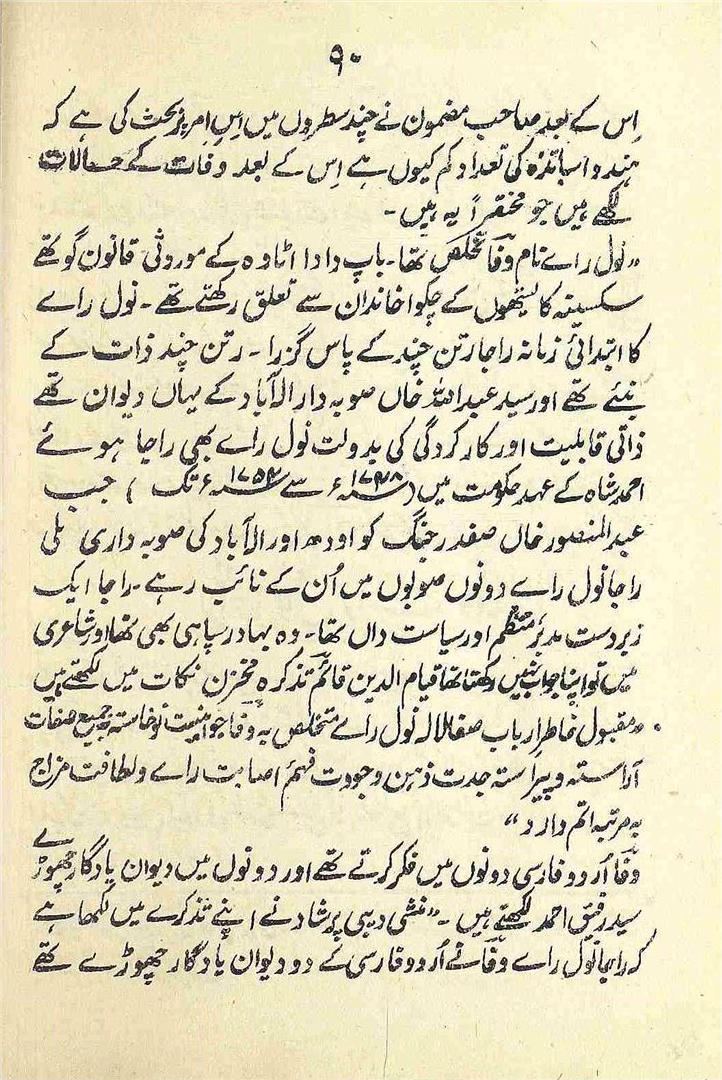 ۹۰
اِس کے بعد صاحب مضمون نے چند سطروں میں اِس امر پر بحث کی ہے کہ
ہندو اساتذہ کی تعداد کم کیوں ہے اِس کے بعد وفات کے حالات
لکھے ہیں جو مختصراً یہ ہیں۔
"نول رائے نام وفا تخلص تھا۔ باپ دادا اٹاوہ کے موروثی قانون گو تھے
سکسینہ کایستھوں کے چکوا خاندان سے تعلق رکھتے تھے۔ نول راے
کا ابتدائی زمانہ راجا رتن چند کے پاس گزرا۔ رتن چند ذات کے
بنئے تھے اور سید عبداللہ خاں صوبہ دار الٰہ آباد کے یہاں دیوان تھے
ذاتی قابلیت اور کارکردگی کی بدولت نول راے بھی راجا ہوئے
احمد شاہ کے عہد حکومت میں (۱۷۴۸ء سے ۱۷۵۴ء تک) جب
عبدالمنصور خاں صفدر جنگ کو اودھ اور الٰہ آباد کی صوبہ داری ملی
راجا نول راے دونوں صوبوں میں اُن کے نائب رہے۔ راجا ایک
زبردست مدبر منتظم اور سیاست داں تھا۔ وہ بہادر سپاہی بھی تھا اور شاعری
میں تو اپنا جواب نہیں رکھتا تھا قیام الدین قائم تذکرہ مخزن نکات میں لکھتے ہیں
"مقبول خاطر ارباب صفا لالہ نول راے متخلص بہ وفا جوانیست نوخاستہ بجمیع صفات
آراستہ و پیراستہ جدت ذہن و جودت فہم اصابت راے و لطافت مزاج
بہ مرتبہ اتم دارد"
وفا اُردو فارسی دونوں میں فکر کرتے تھے اور دونوں میں دیوان یادگار چھوڑے
سید رفیق احمد لکھتے ہیں۔ "منشی دیبی پرشاد نے اپنے تذکرے میں لکھا ہے
کہ راجا نول راے وفا نے اُردو فارسی کے دو دیوان یادگار چھوڑے تھے